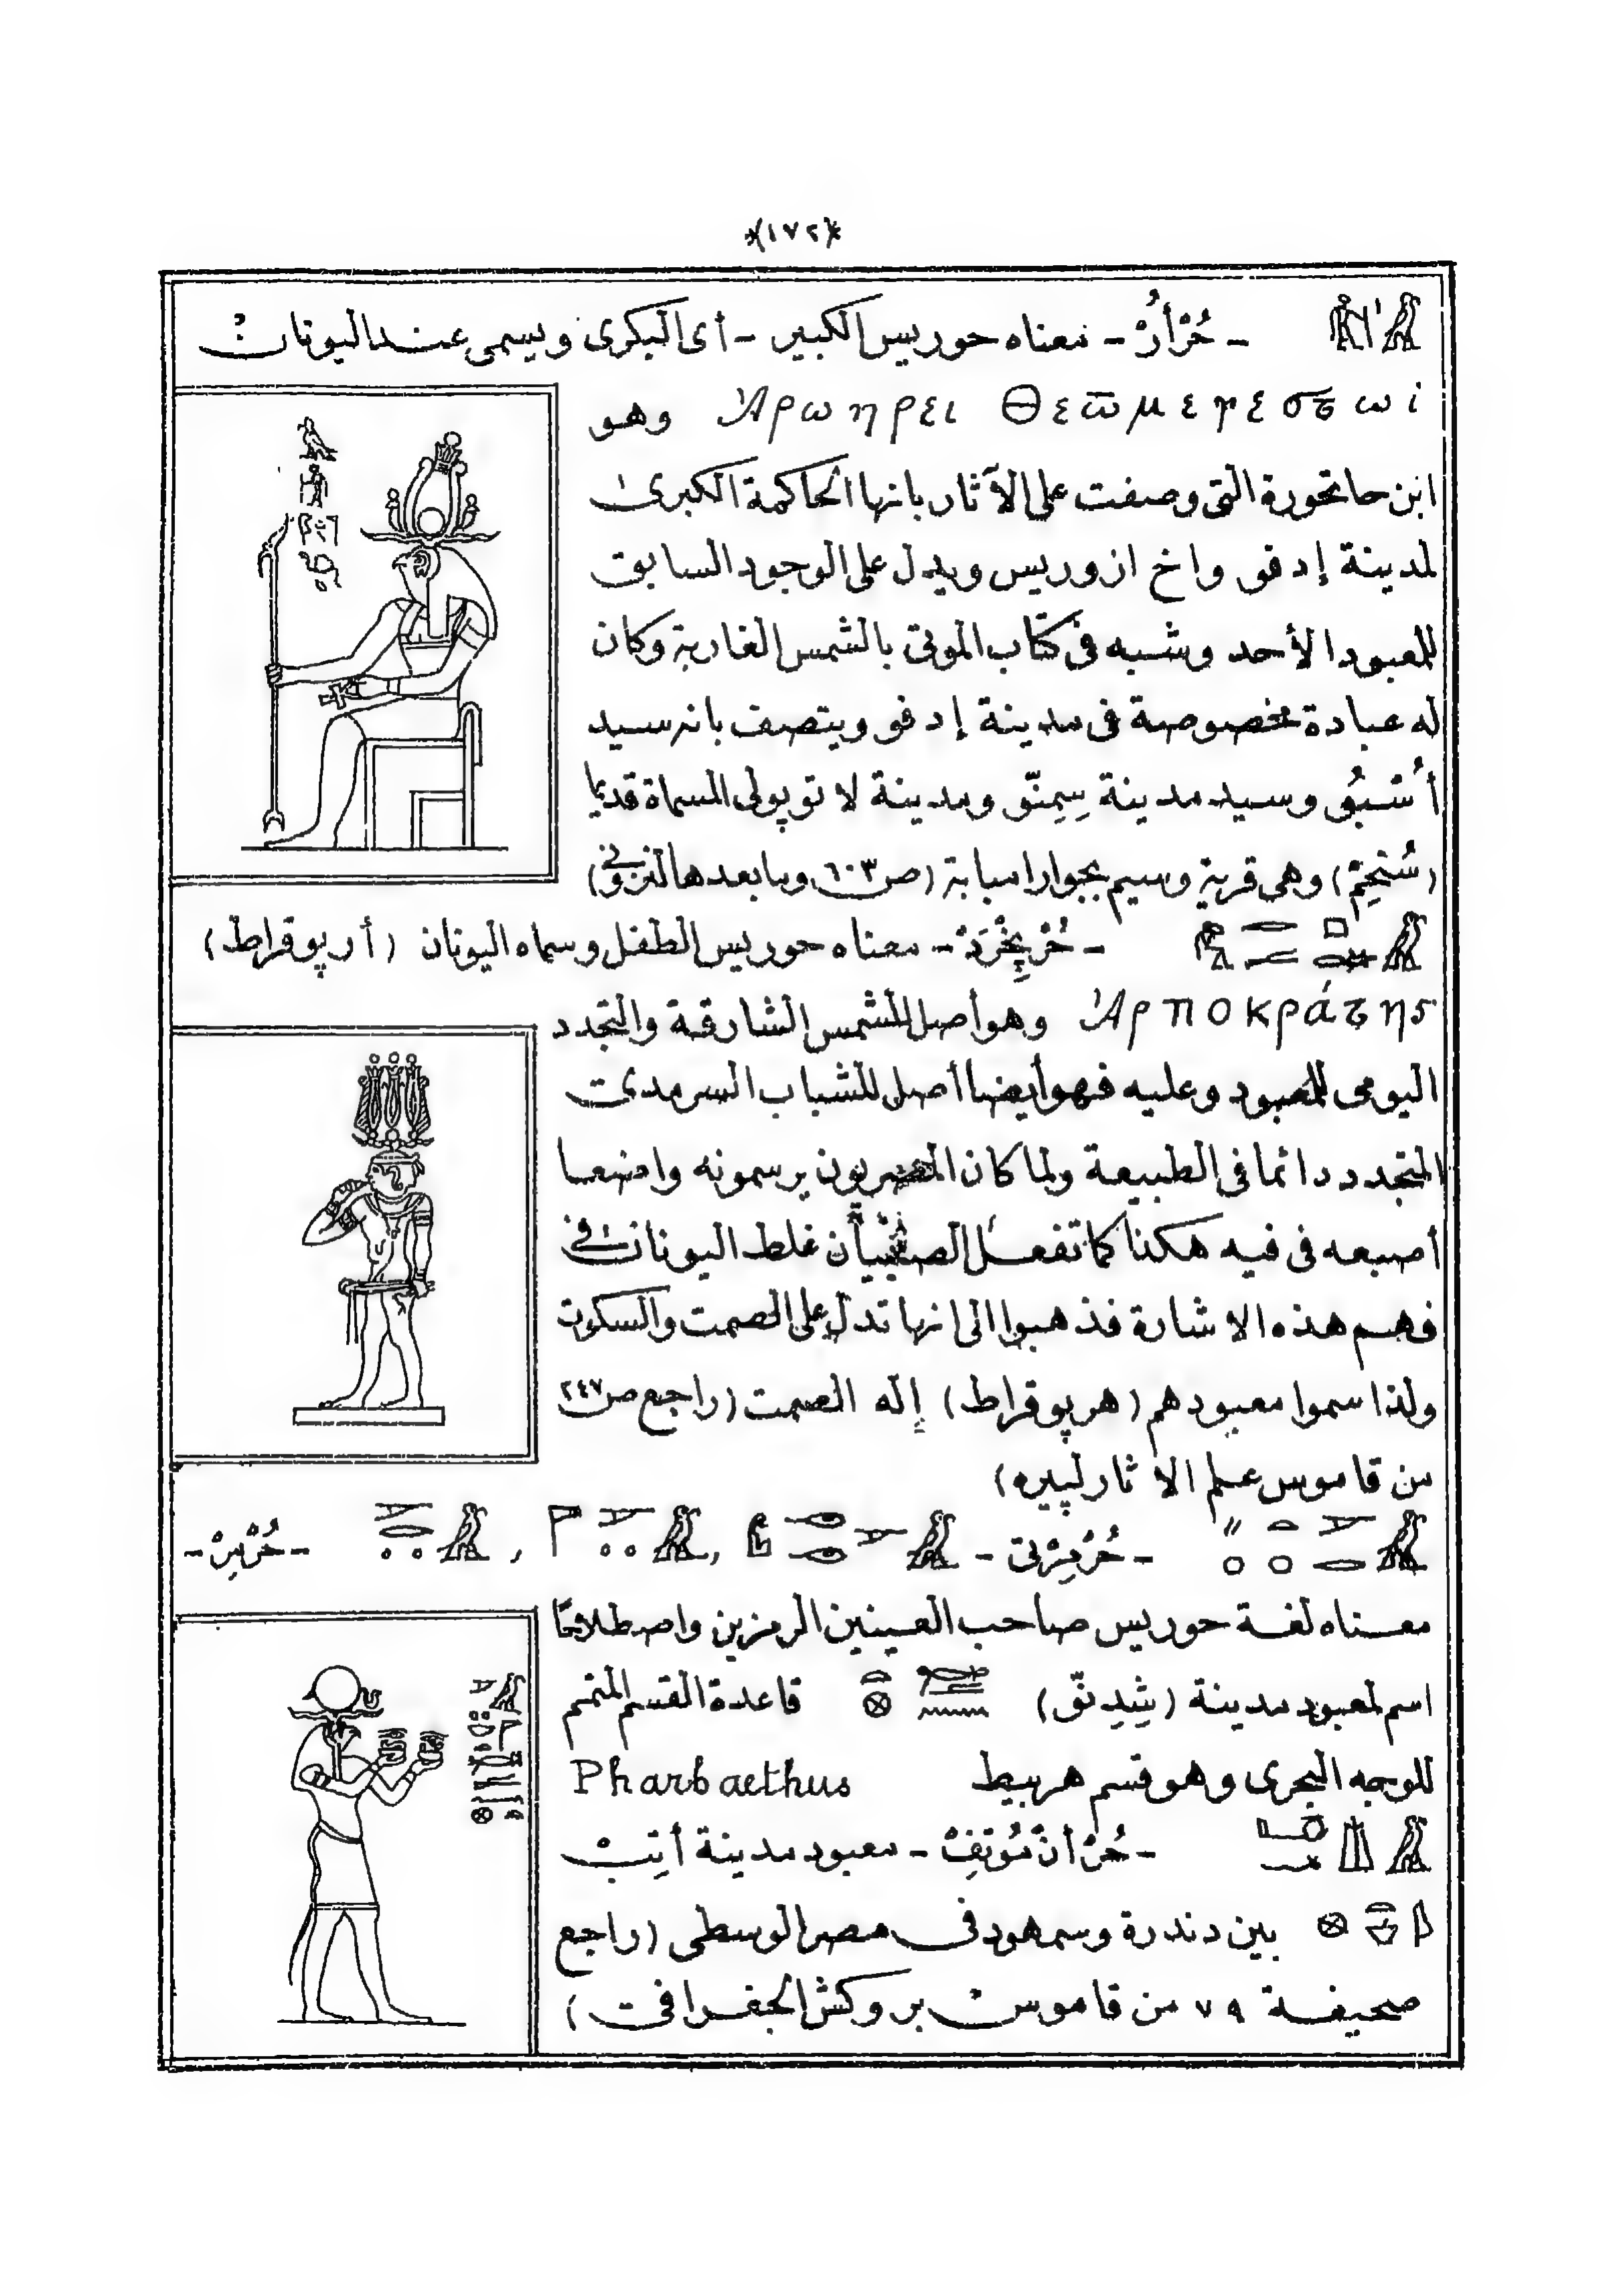 ﴿١٧٢﴾
- حُرْأُرْ - معناه حوريس الكبير - أى البكرى ويسمى عند اليونان
Ἀρωηρει Θεῶ μεγε
وهو
ابن حاتحورة التى وصفت على الآثار بانها الحاكمة الكبرى
لمدينة إدفو واخ ازوريس ويدل على الوجود السابق
للمعبود الأحد وشبه فى كتاب الموتى بالشمس الغاربة وكان
له عبادة مخصوصة فى مدينة إدفو ويتصف بانه سيد
أُسْبُو وسيد مدينة سِمِنّو ومدينة لاتوپولى المسماة قديما
(سُخِمْ) وهى قرية وسيم بجوار امبابة (ص ٦٠٣ وما بعدها
- حُرْپِخْرَدْ - معناه حوريس الطفل وسماه اليونان (أرپوقراط)
Ἀρποκράτης وهو أصل للشمس الشارقة والتجدد
اليومى للمعبود وعليه فهو أيضا أصل للشباب السرمدى
المتجدد دائما فى الطبيعة ولما كان المصريون يرسمونه واضعا
أصبعه فى فيه هكذا كما تفعل الصبيان غلط اليونان فى
فهم هذه الاشارة فذهبوا الى انها تدل على الصمت والسكوت
ولذا سموا معبودهم (هرپوقراط) إله الصمت (راجع ص ٢٤٧
من قاموس علم الآثار لپيره)
- حُرْمِرْتى - , , - حُرْمِرْ -
معناه لغة حوريس صاحب العينين الرمزين واصطلاحًا
اسم لمعبود مدينة (شِدِنّو) قاعدة القسم المتمم
للوجه البحرى وهو قسم هربيط Pharbaethus
- حُرْأنْمُوتِفْ - معبود مدينة أتِبْ
بين دندرة وسمهود فى مصر الوسطى (راجع
صحيفة ٧٩ من قاموس بروكش الجغرافى)